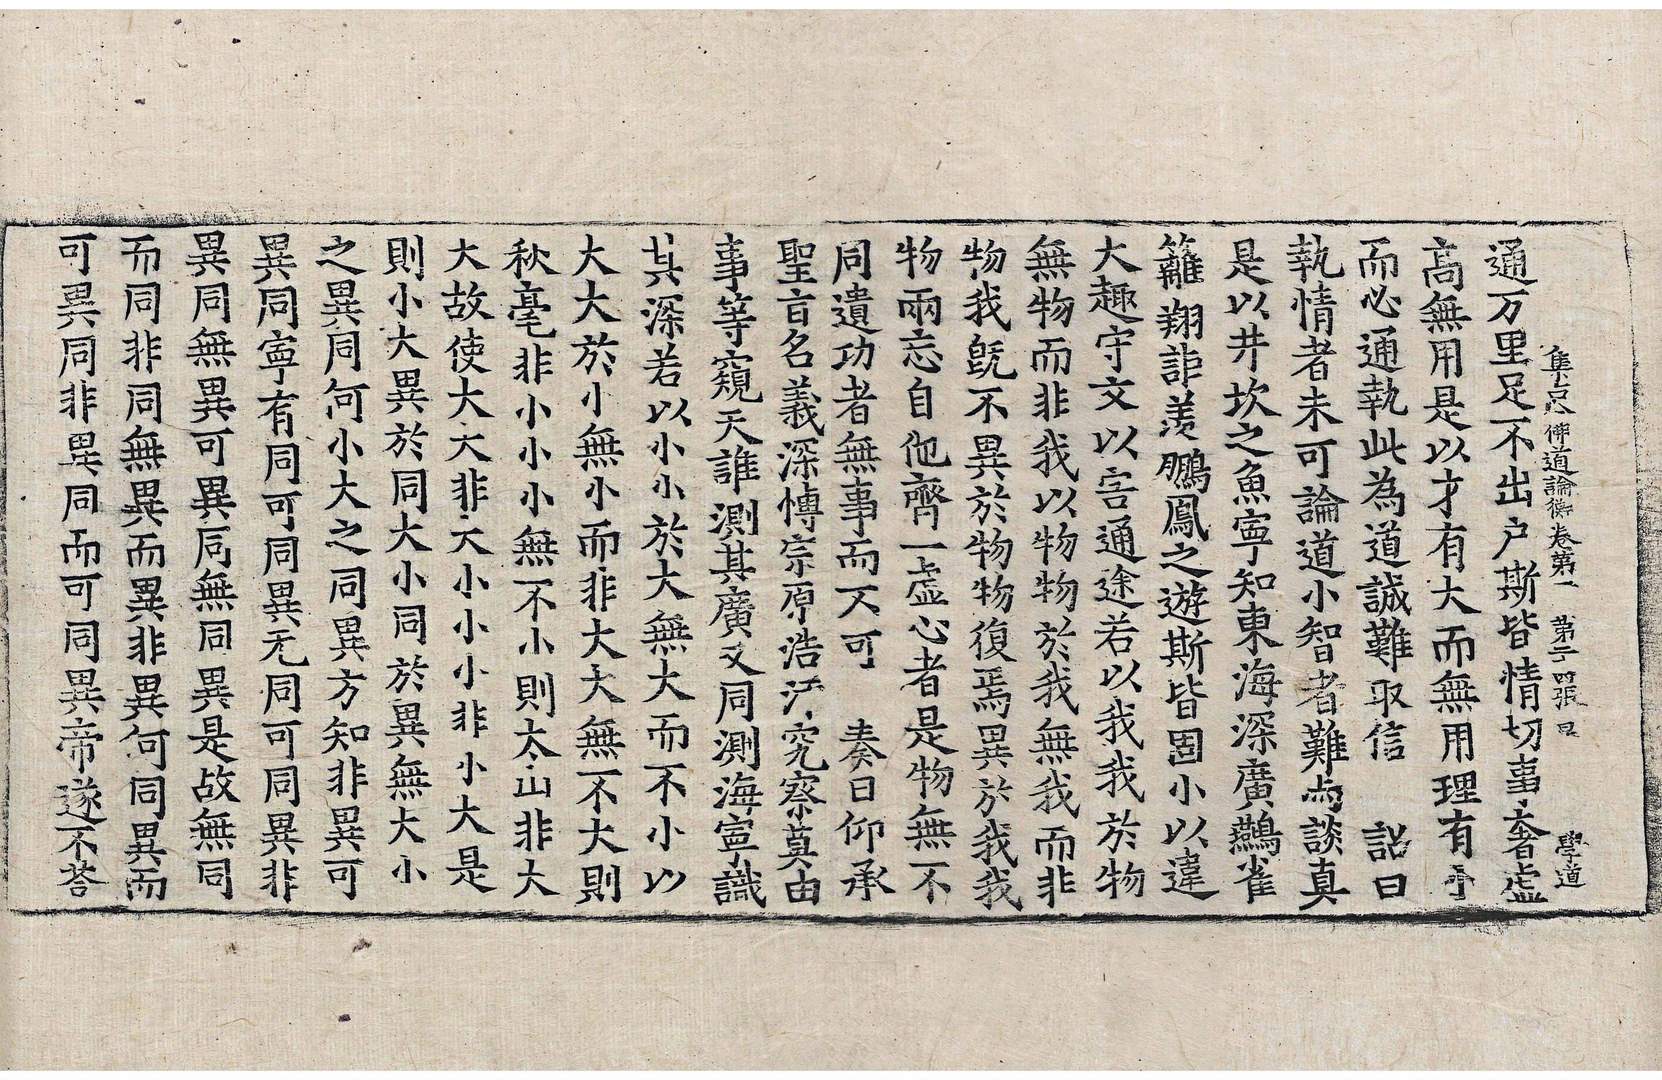 集古今佛道論衡卷第一 第二四張 𠃔 學道
通万里足不出户斯皆情切事奢虛
高無用是以才有大而無用理有小
而必通執此為道誠難取信 詔曰
執情者未可論道小智者難与談真
是以井坎之魚寧知東海深廣鷃雀
籬翔詎羡鵬鳳之遊斯皆固小以違
大趣守文以害通途若以我我於物
無物而非我以物物於我無我而非
物我既不異於物物復焉異於我我
物兩忘自他齊一虛心者是物無不
同遺功者無事而不可 奏曰仰承
聖旨名義深慱宗原浩汗究察莫由
事等窺天誰測其廣又同測海寧識
其深若以小小於大無大而不小以
大大於小無小而非大大無不大則
秋毫非小小小無不小則太山非大
大故使大大非大小小非小大是
則小大異於同大小同於異無大小
之異同何小大之同異方知非異可
異同寧有同可同異无同可同異非
異同無異可異同無同異是故無同
而同非同無異而異非異何同異而
可異同非異同而可同異帝遂不荅